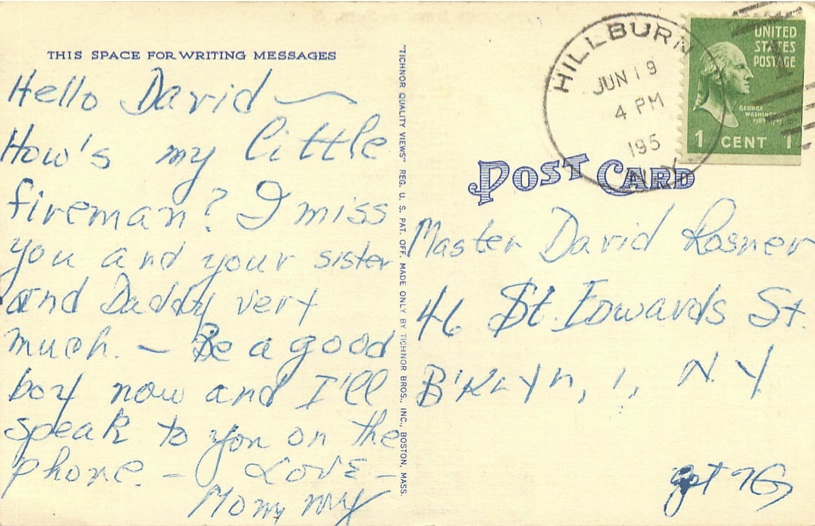 THIS SPACE FOR WRITING MESSAGES
Hello David —
How's my little
fireman? I miss
you and your sister
and Daddy very
much. — Be a good
boy now and I'll
speak to you on the
phone. — Love —
Mommy
"TICHNOR QUALITY VIEWS" REG. U. S. PAT. OFF. MADE ONLY BY TICHNOR BROS., INC., BOSTON, MASS.
HILLBURN
JUN 19
4 PM
195
N.Y.
UNITED
STATES
POSTAGE
GEORGE
WASHINGTON
1 CENT 1
POST CARD
Master David Rosner
46 St. Edwards St.
B'KLYN, 1, N.Y.
apt 7G